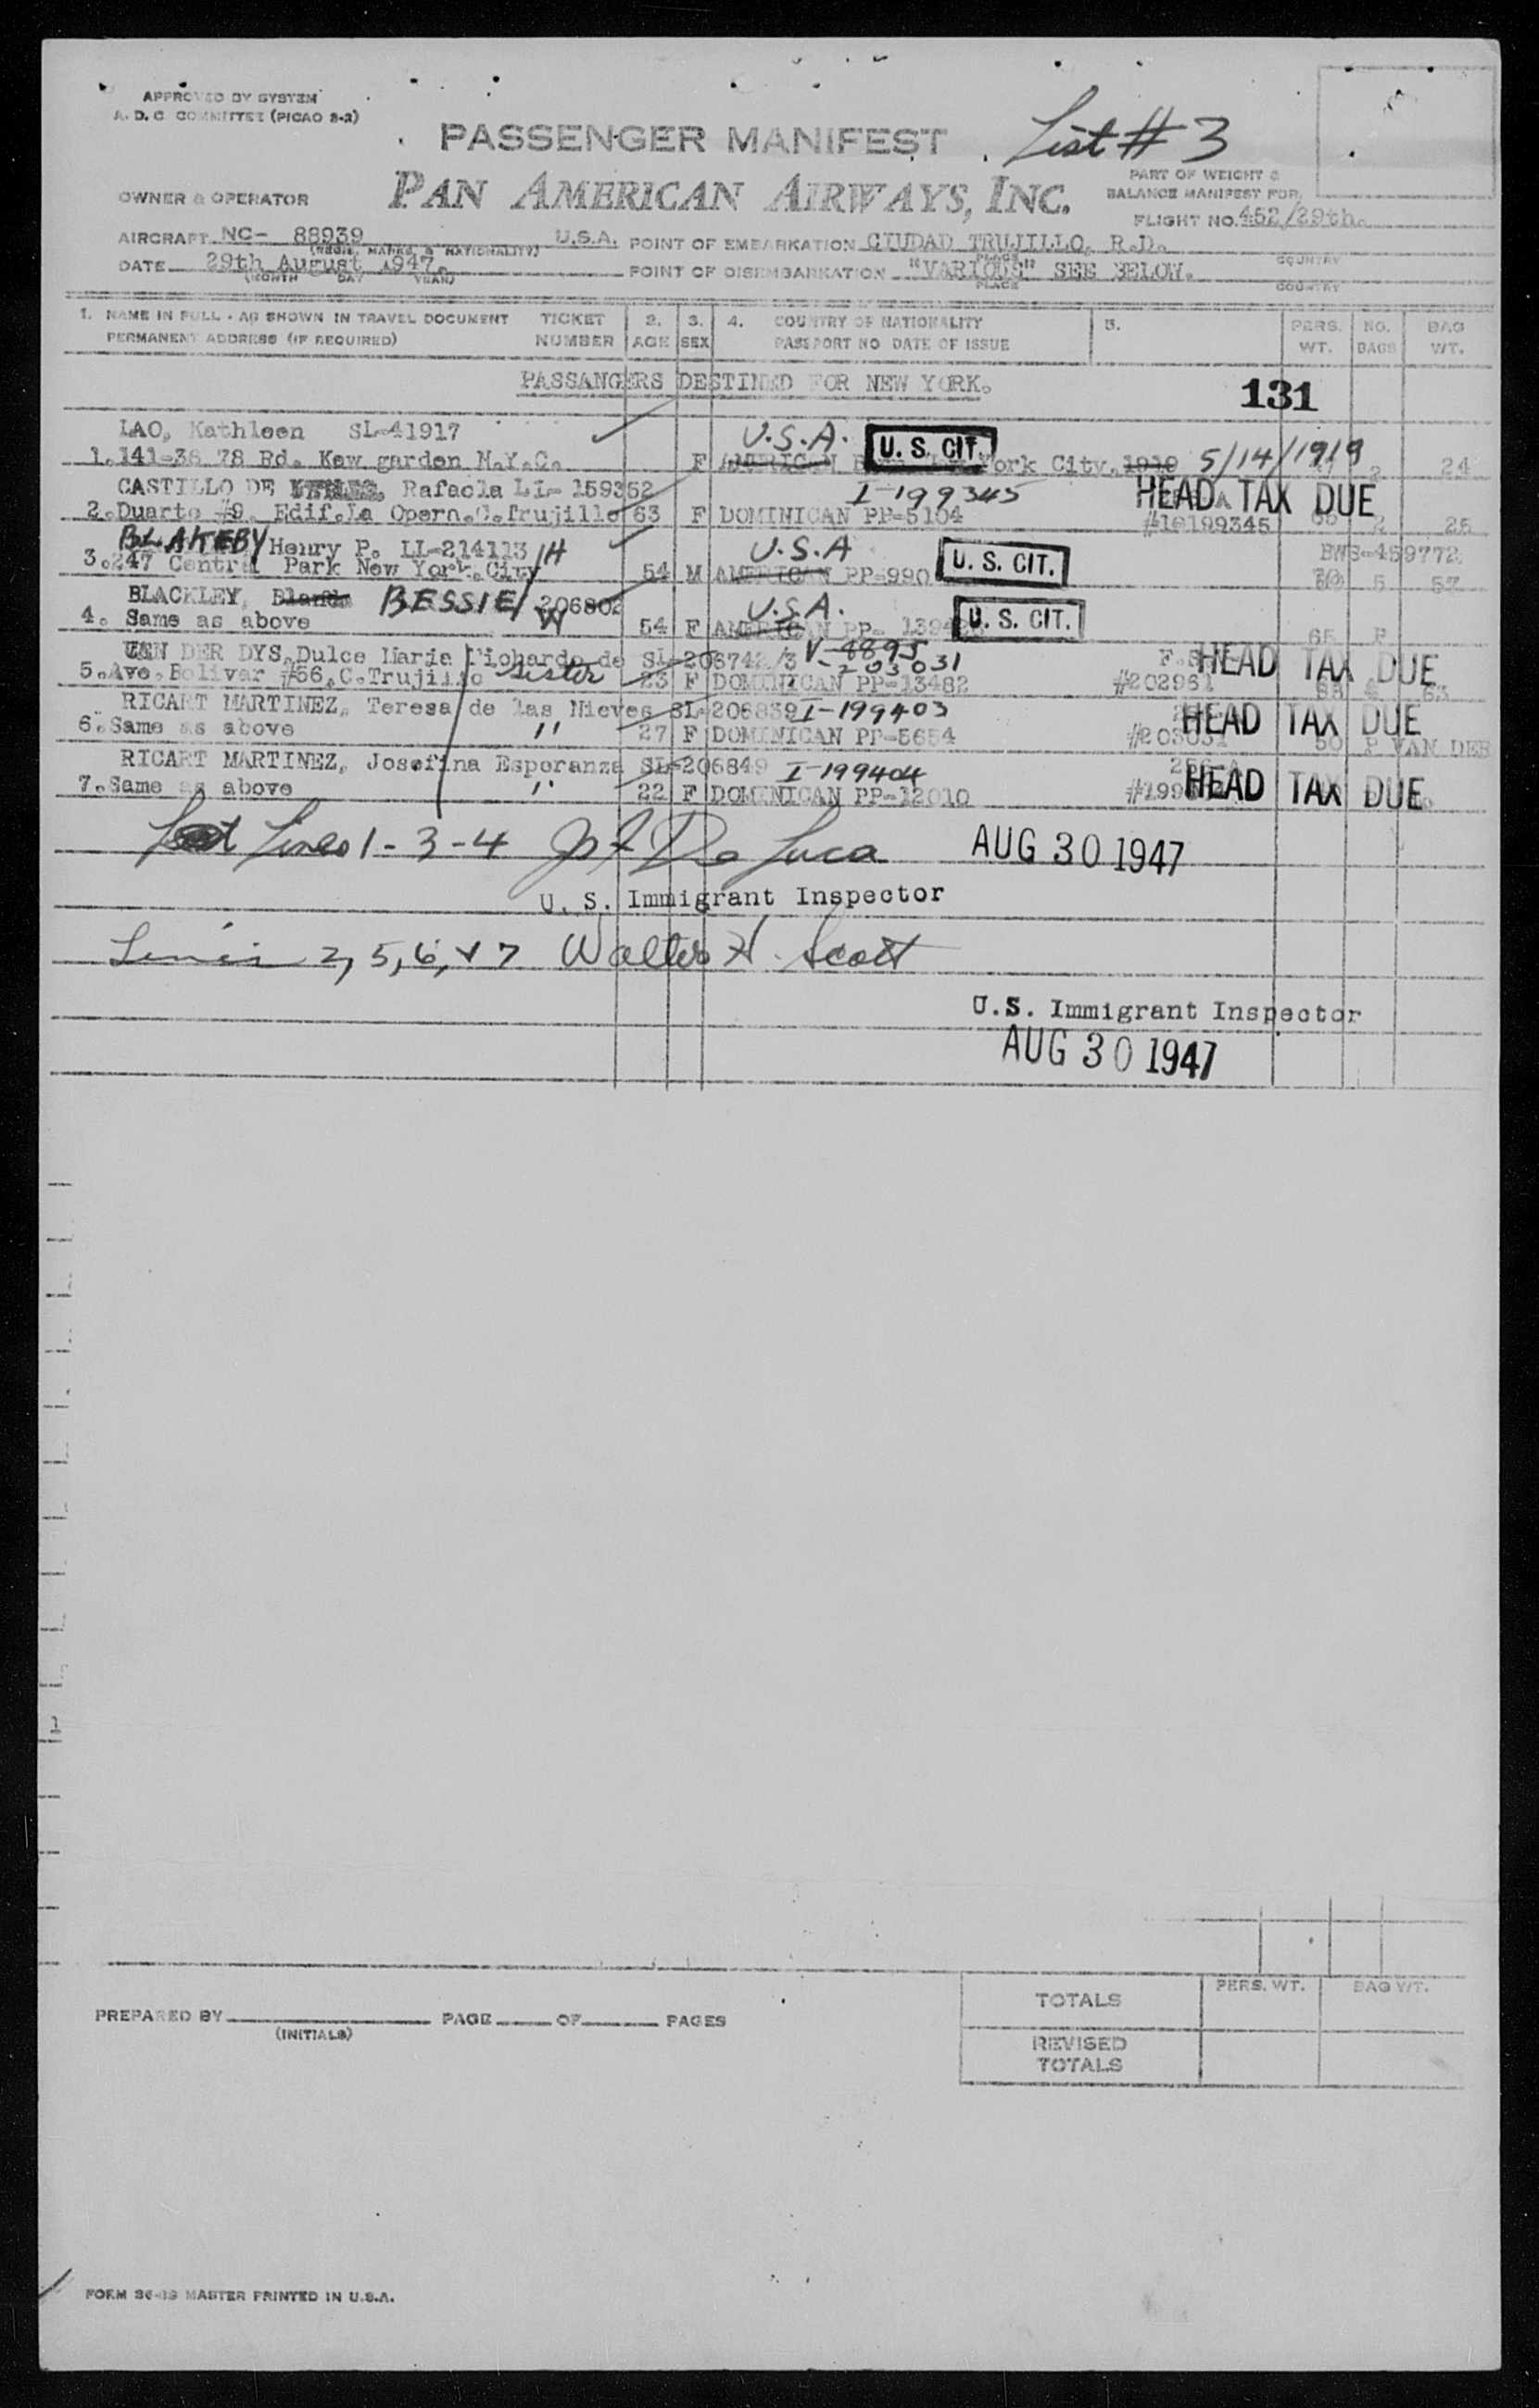 APPROVED BY SYSTEM
A. D. C. COMMITTEE (PICAO S-2)
PASSENGER MANIFEST
List # 3
PART OF WEIGHT &
BALANCE MANIFEST FOR
OWNER & OPERATOR PAN AMERICAN AIRWAYS, INC.
FLIGHT NO. 452/29th.
AIRCRAFT NC- 88939 U.S.A. POINT OF EMBARKATION CIUDAD TRUJILLO, R.D.
MARKS & NATIONALITY) PLACE COUNTRY
DATE 29th August 1947. POINT OF DISEMBARKATION "VARIOUS" SEE BELOW.
(MONTH DAY YEAR) PLACE COUNTRY
1. NAME IN FULL - AS SHOWN IN TRAVEL DOCUMENT TICKET 2. 3. 4. COUNTRY OF NATIONALITY 5. PERS. NO. BAG
PERMANENT ADDRESS (IF REQUIRED) NUMBER AGE SEX PASSPORT NO DATE OF ISSUE WT. BAGS WT.
PASSANGERS DESTINED FOR NEW YORK.
131
LAO, Kathleen SL-41917 U.S.A. U. S. CIT.
1. 141-38 78 Rd. Kew garden N.Y.C. F AMERICAN York City. 1919 5/14/1919 2 24
CASTILLO DE Rafaela LL- 159352 I-199345 HEAD TAX DUE
2. Duarte #9. Edif. La Opera. C. Trujillo 63 F DOMINICAN PP-5104 #I0199345 2 25
BLAKEBY Henry P. LL-214113 H U.S.A U. S. CIT. BWS-459772
3. 247 Central Park New York. City 54 M AMERICAN PP-990 5 57
BLACKLEY, BESSIE 206802 W U.S.A. U. S. CIT.
4. Same as above 54 F AMERICAN PP- 65 F
VAN DER DYS, Dulce Maria Pichardo de SL-206742/3 V-4895 HEAD TAX DUE
5. Ave. Bolivar #56, C. Trujillo Sister 23 F DOMINICAN PP-13482 203031 #202961 63
RICART MARTINEZ, Teresa de las Nieves SL-206839 I-199403 HEAD TAX DUE
6. Same as above " 27 F DOMINICAN PP-5654 #203031 50 P. VAN DER
RICART MARTINEZ, Josefina Esperanza SL-206849 I-199404 HEAD TAX DUE
7. Same as above " 22 F DOMINICAN PP-12010
Lines 1-3-4 De Luca AUG 30 1947
U. S. Immigrant Inspector
Lines 2, 5, 6, & 7 Walter H. Scott
U.S. Immigrant Inspector
AUG 30 1947
1
PREPARED BY PAGE OF PAGES
(INITIALS)
TOTALS PERS. WT. BAG WT.
REVISED
TOTALS
FORM 36-19 MASTER PRINTED IN U.S.A.